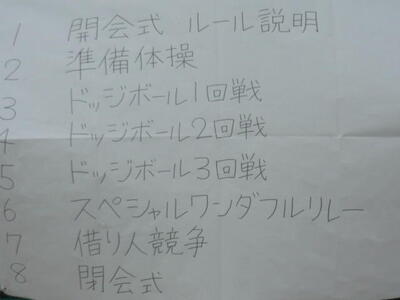 1 開会式 ルール説明
2 準備体操
3 ドッジボール1回戦
4 ドッジボール2回戦
5 ドッジボール3回戦
6 スペシャルワンダフルリレー
7 借り人競争
8 閉会式